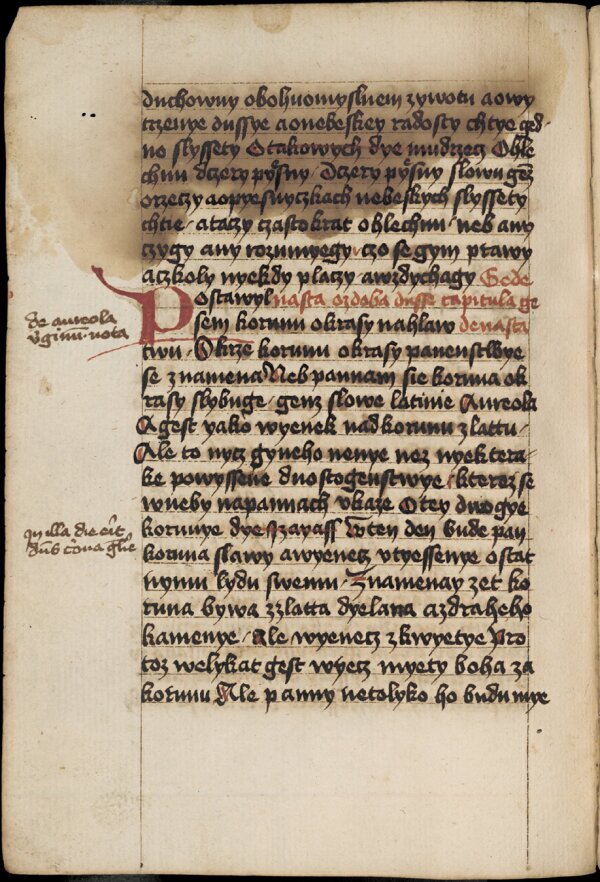 duchowny obohuomysluem zywotu aowy
trzenye dussye aonebeskey radosty chtye ged
no slyssety Otakowych dye mudrzecz Ohle
chnu dczery pyesny Dczery pyesny slowu genz
orzeczy aopyesnyczkach nebeskych slyssety
chtie / ataczy czastokrat ohlechnu / neb any
czygy any rozumyegy czo se gym prawy
aczkoly nyekdy placzy awzdychagy Sede
Postawyl nasta ozdoba dusse capitula ge
sem korunu okrasy nahlaw denasta
twu / Skrze korunu okrasy panenstwye
se znamena Neb pannam sie koruna ok
rasy slybuge / genz slowe latinie Aureola
Agest yako wyenek nadkorunu zlattu /
Ale to nycz gyneho nenye nez nyektera
ke powyssene duostogenstwye / kterez se
wneby napannach vkaze Otey dwogye
korunye dye yzayass Vten den bude pan
koruna slawy awyenecz vtyessenye ostat
nymu lydu swemu / Znamenay zet ko
runa bywa zzlatta dyelana azdraheho
kamenye / Ale wyenecz zkwyetye Pro
toz welykat gest wyecz myety boha za
korunu Ale panny netolyko ho budu mye
de aureola
v̄ginū nota
In illa die erit
dn̄s corōa glīe